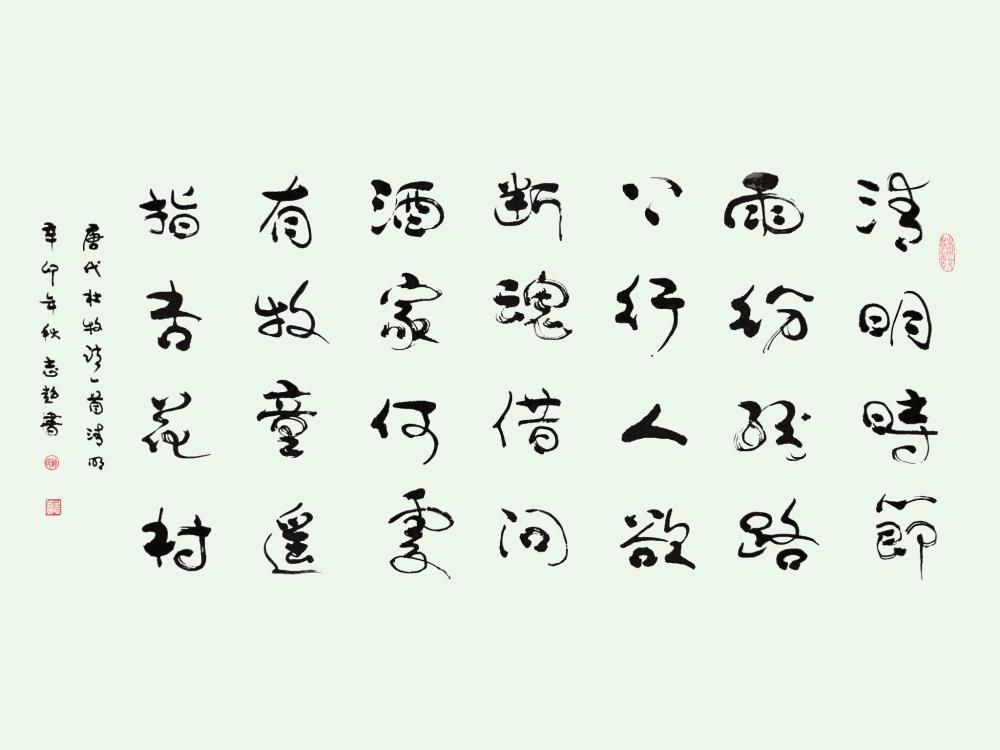 清明時節
雨紛紛路
上行人欲
断魂借问
酒家何處
有牧童遥
指杏花村
唐代杜牧詩一首清明
辛卯年秋志書